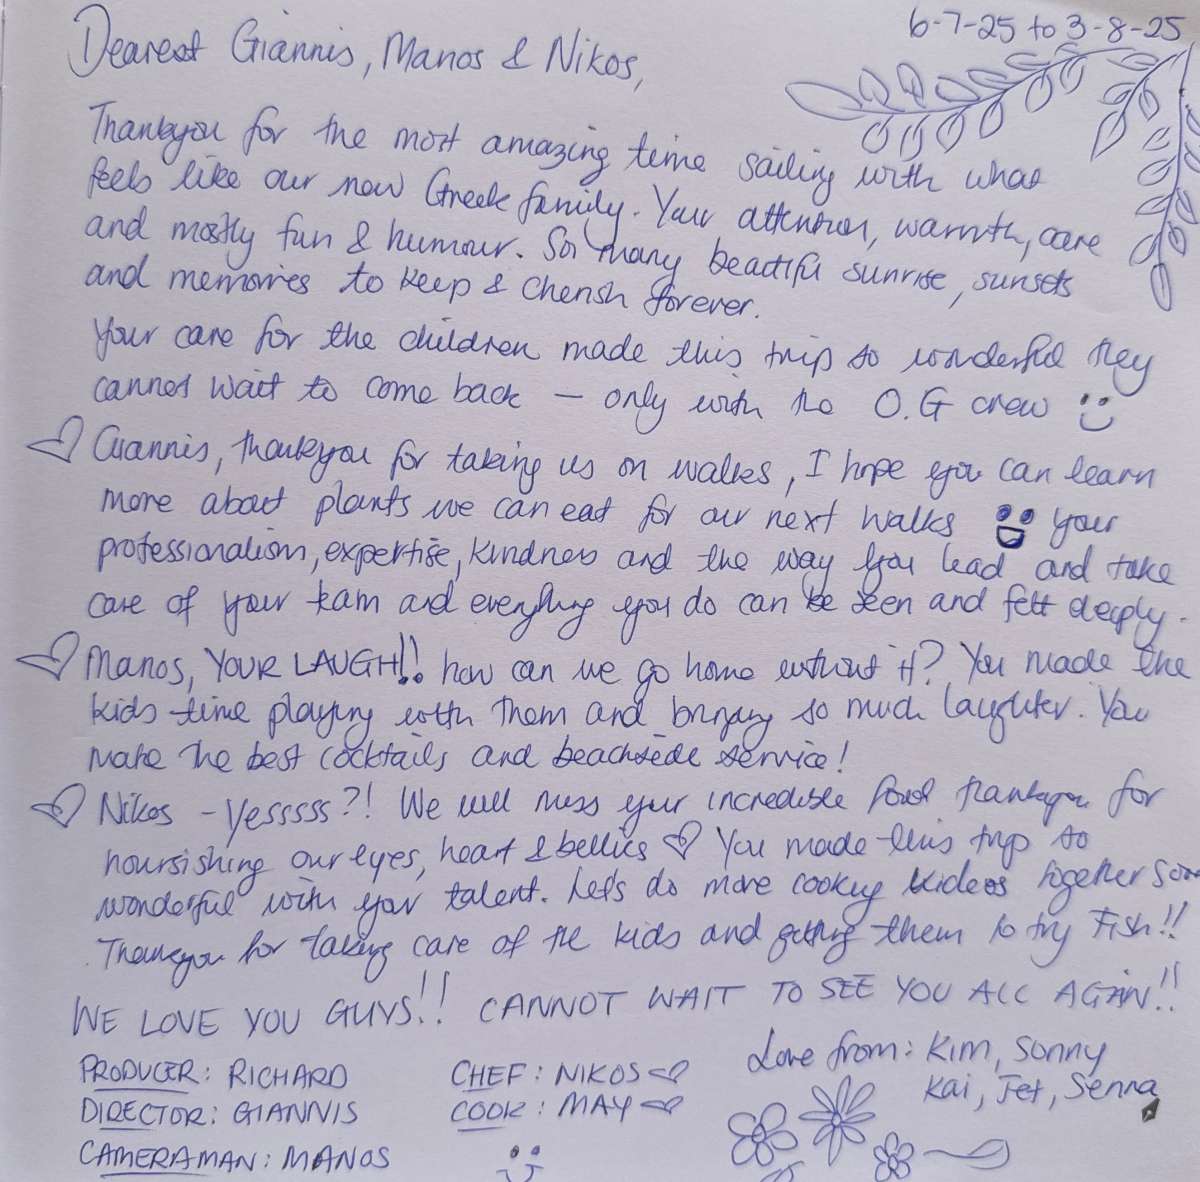 6-7-25 to 3-8-25
Dearest Giannis, Manos & Nikos,
Thankyou for the most amazing time sailing with what
feels like our new Greek family. Your attention, warmth, care
and mostly fun & humour. So many beautiful sunrise, sunsets
and memories to keep & cherish forever.
Your care for the children made this trip so wonderful they
cannot wait to come back – only with the O.G crew
Giannis, thankyou for taking us on walks, I hope you can learn
more about plants we can eat for our next walks your
professionalism, expertise, kindness and the way you lead and take
care of your team and everything you do can be seen and felt deeply.
Manos, YOUR LAUGH!! how can we go home without it? You made the
kids time playing with them and bringing so much laughter. You
make the best cocktails and beachside service!
Nikos - Yesssss?! We will miss your incredible food thankyou for
nourishing our eyes, heart & bellies You made this trip so
wonderful with your talent. Let's do more cooking videos together soon
Thankyou for taking care of the kids and getting them to try Fish!!
WE LOVE YOU GUYS!! CANNOT WAIT TO SEE YOU ALL AGAIN!!
PRODUCER: RICHARD
DIRECTOR: GIANNIS
CAMERAMAN: MANOS
CHEF: NIKOS
COOK: MAY
Love from: Kim, Sonny
Kai, Jet, Senna